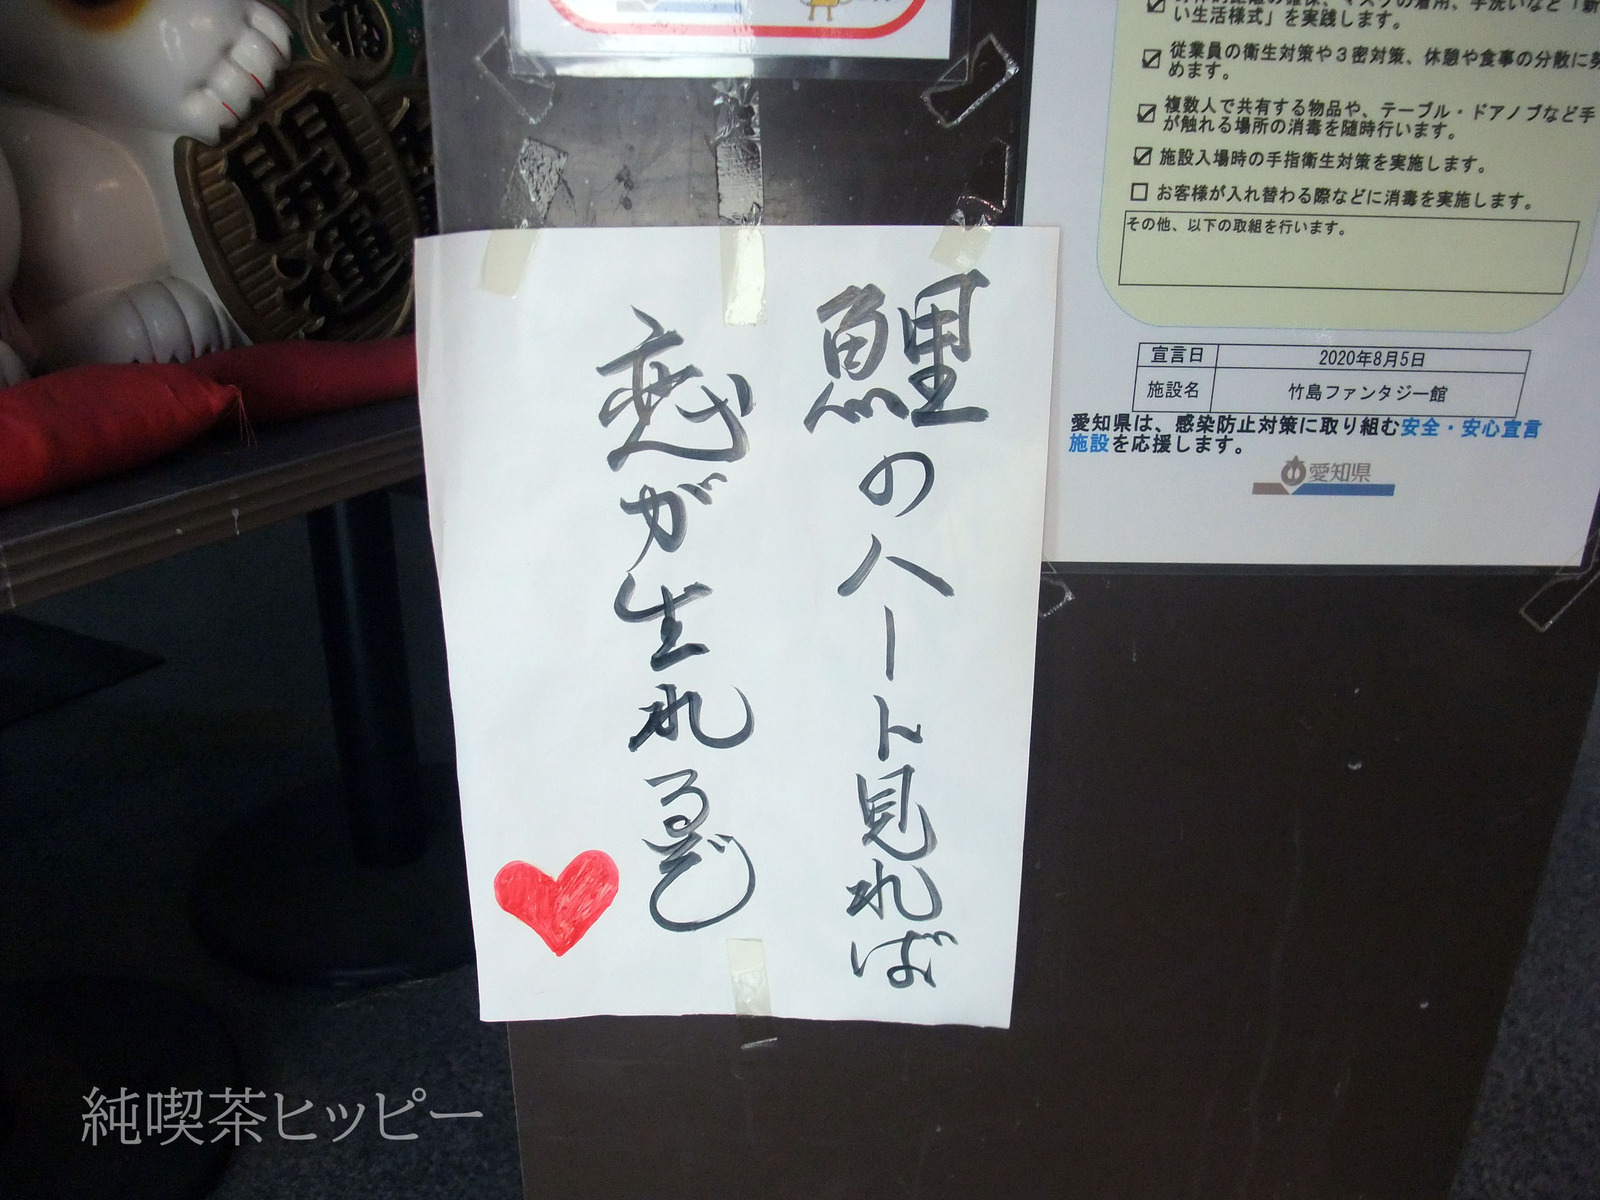 鯉のハート見れば
恋が生れるぞ
開運
福
い生活様式」を実践します。
従業員の衛生対策や3密対策、休憩や食事の分散に努
めます。
複数人で共有する物品や、テーブル・ドアノブなど手
が触れる場所の消毒を随時行います。
施設入場時の手指衛生対策を実施します。
お客様が入れ替わる際などに消毒を実施します。
その他、以下の取組を行います。
宣言日 2020年8月5日
施設名 竹島ファンタジー館
愛知県は、感染防止対策に取り組む安全・安心宣言
施設を応援します。
愛知県
純喫茶ヒッピー